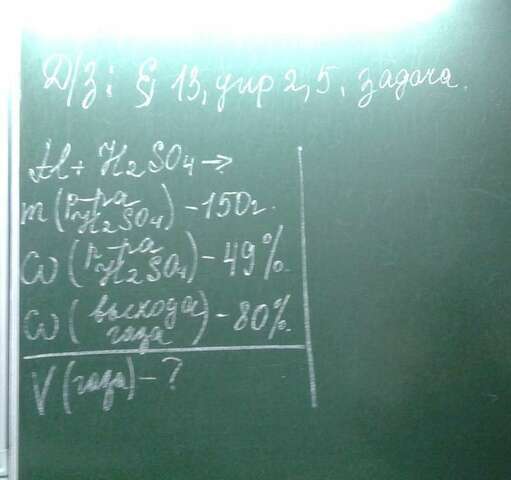 Д/З: § 13, упр 2, 5, задача.
Al + H₂SO₄ →
m (р-ра H₂SO₄) - 150г.
ω (р-ра H₂SO₄) - 49%.
ω (выхода газа) - 80%.
V (газа) - ?